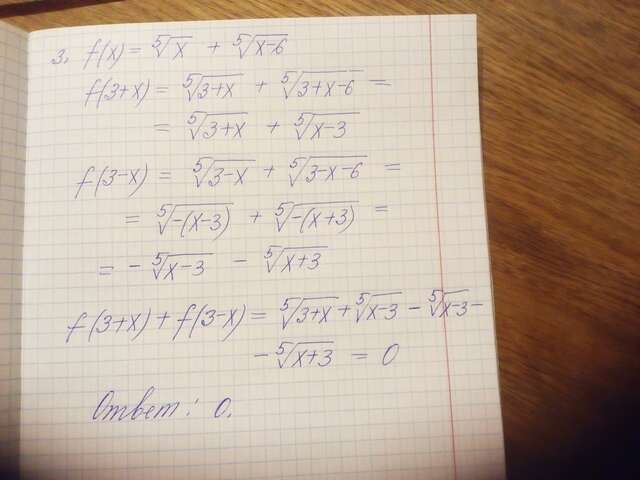 3. f(x) = ⁵√x + ⁵√(x-6)
f(3+x) = ⁵√(3+x) + ⁵√(3+x-6) =
= ⁵√(3+x) + ⁵√(x-3)
f(3-x) = ⁵√(3-x) + ⁵√(3-x-6) =
= ⁵√(-(x-3)) + ⁵√(-(x+3)) =
= - ⁵√(x-3) - ⁵√(x+3)
f(3+x) + f(3-x) = ⁵√(3+x) + ⁵√(x-3) - ⁵√(x-3) -
- ⁵√(x+3) = 0
Ответ: 0.